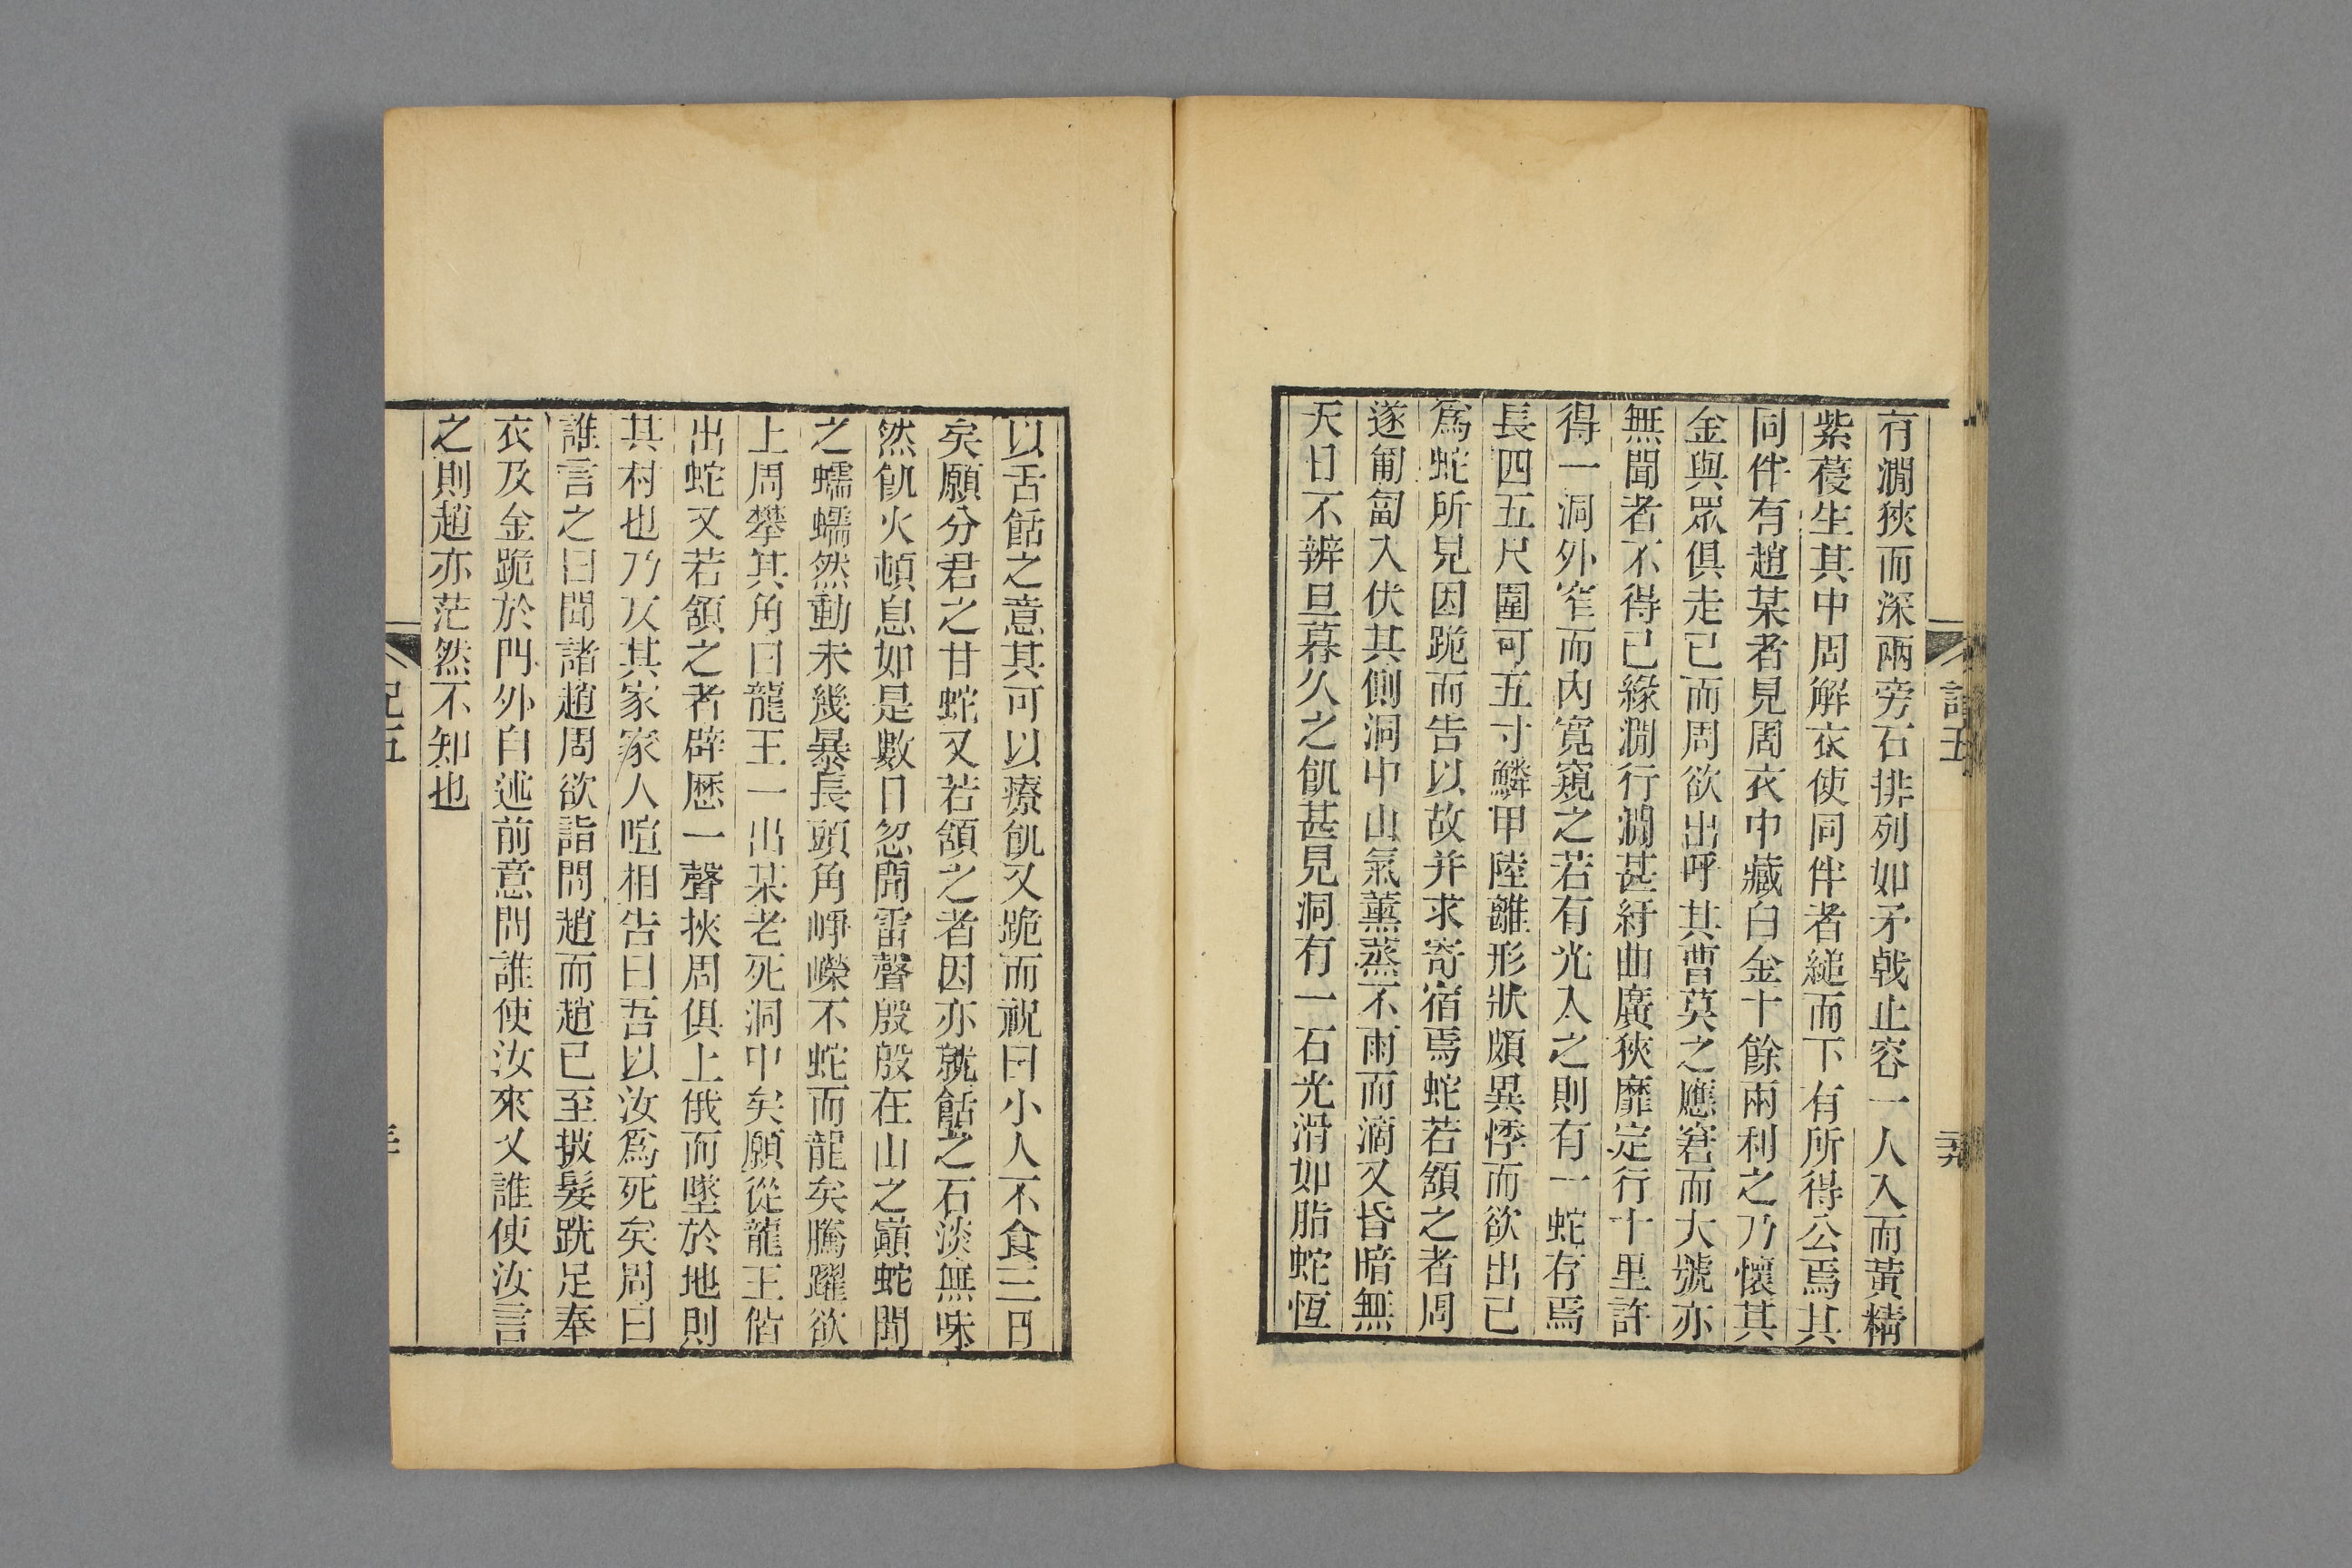 有澗狹而深兩旁石排列如矛戟止容一人入而黃精
紫葠生其中周解衣使同伴者縋而下有所得公焉其
同伴有趙某者見周衣中藏白金十餘兩利之乃懷其
金與眾俱走已而周欲出呼其曹莫之應窘而大號亦
無聞者不得已緣澗行澗甚紆曲廣狹靡定行十里許
得一洞外窄而內寬窺之若有光入之則有一蛇存焉
長四五尺圍可五寸鱗甲陸離形狀頗異悸而欲出已
為蛇所見因跪而告以故并求寄宿焉蛇若頷之者周
遂匍匐入伏其側洞中山氣薰蒸不雨而滴又昏暗無
天日不辨旦暮久之飢甚見洞有一石光滑如脂蛇恆
以舌餂之意其可以療飢又跪而祝曰小人不食三日
矣願分君之甘蛇又若頷之者因亦就餂之石淡無味
然飢火頓息如是數日忽聞雷聲殷殷在山之巔蛇聞
之蠕蠕然動未幾暴長頭角崢嶸不蛇而龍矣騰躍欲
上周攀其角曰龍王一出某老死洞中矣願從龍王偕
出蛇又若頷之者辟歷一聲挾周俱上俄而墜於地則
其村也乃反其家家人喧相告曰吾以汝為死矣周曰
誰言之曰聞諸趙周欲詣問趙而趙已至披髮跣足奉
衣及金跪於門外自述前意問誰使汝來又誰使汝言
之則趙亦茫然不知也